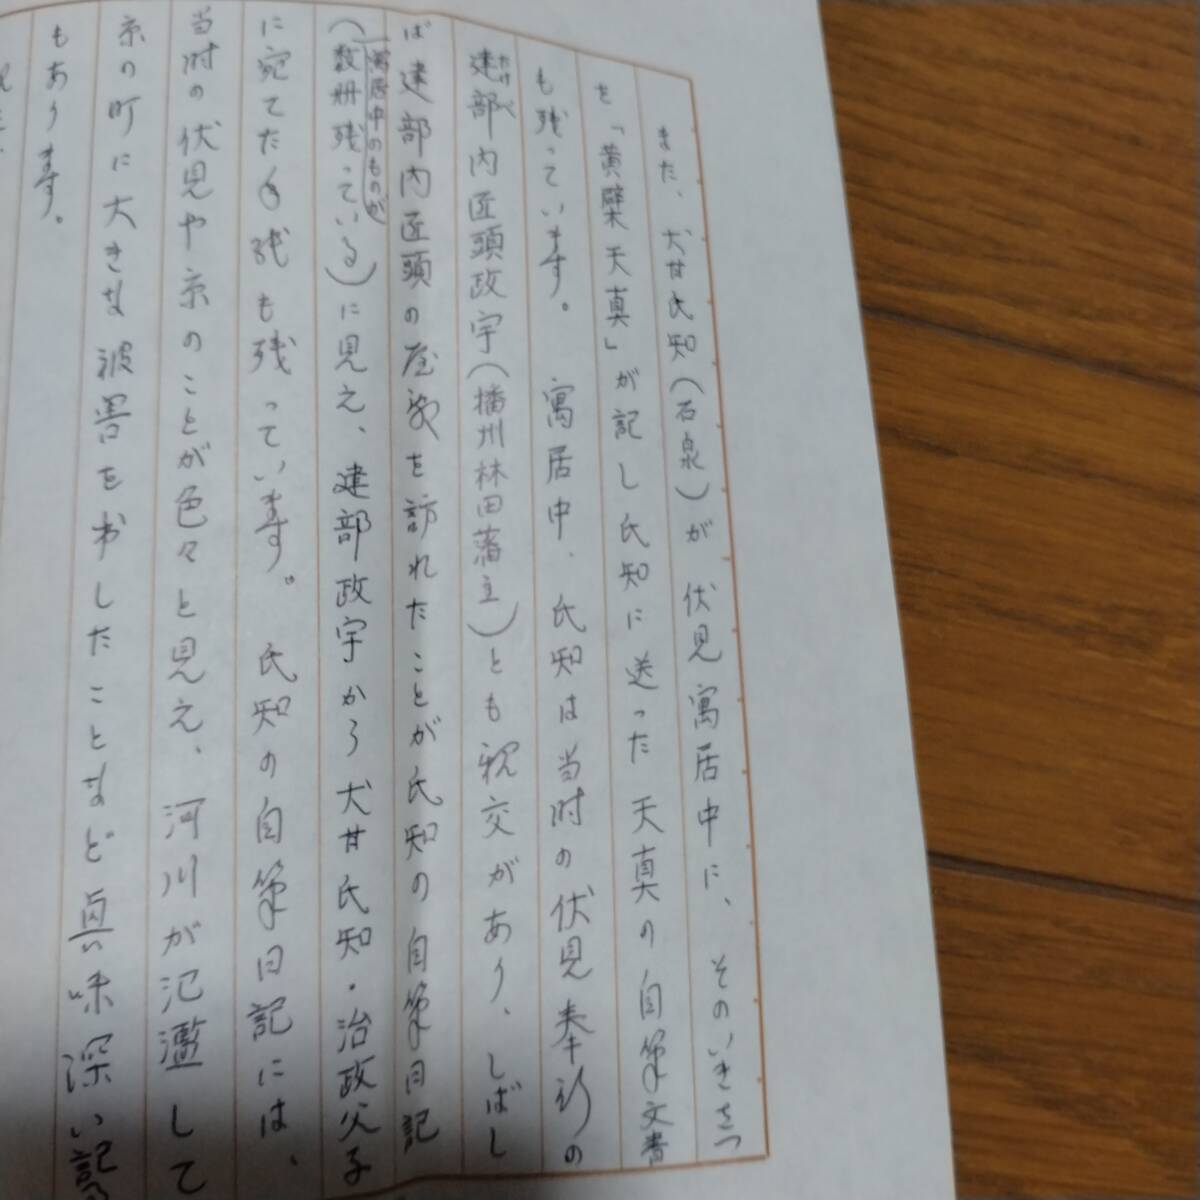 また、犬甘氏知(石泉)が伏見寓居中に、そのいきさつ
を「黄檗天真」が記し氏知に送った天真の自筆文書
も残っています。 寓居中、氏知は当時の伏見奉行の
建部内匠頭政宇(播州林田藩主)とも親交があり、しばし
たけべ
ば建部内匠頭の屋敷を訪れたことが氏知の自筆日記
(寓居中のものが
数冊残っている)に見え、建部政宇から犬甘氏知・治政父子
に宛てた手残も残っています。 氏知の自筆日記には、
当時の伏見や京のことが色々と見え、河川が氾濫して
京の町に大きな被害を出したことなど興味深い記
もあります。